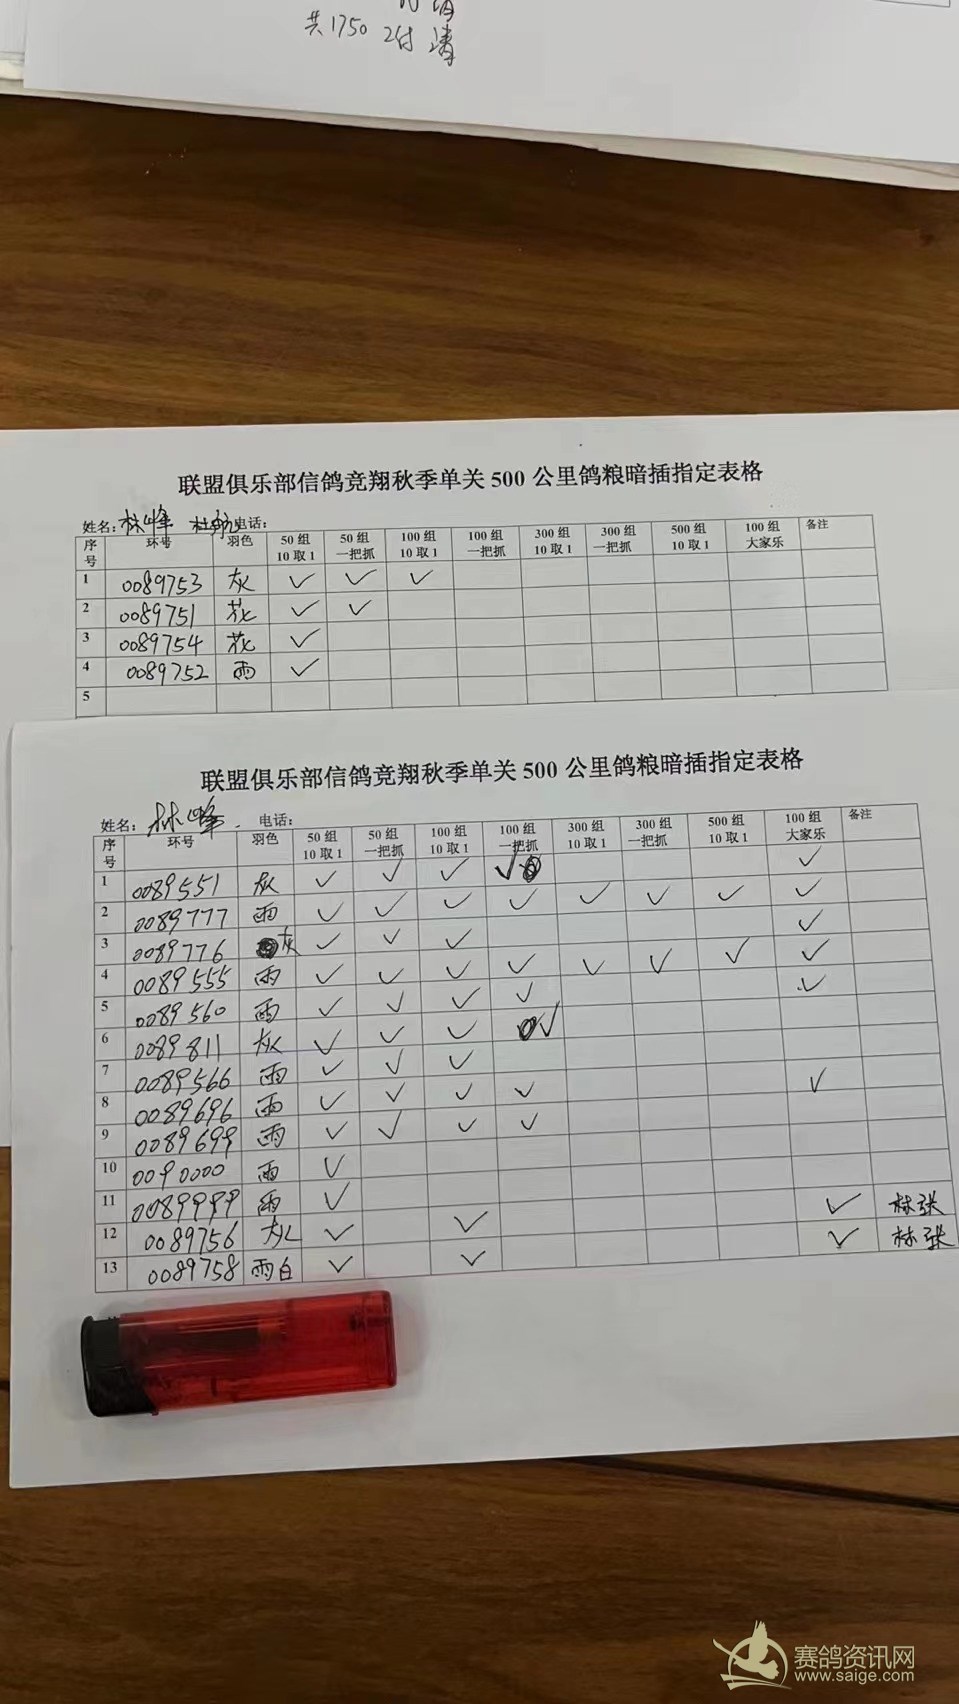 共1750 2付 清
联盟俱乐部信鸽竞翔秋季单关500公里鸽粮暗插指定表格
姓名：林峰 杜航 电话：
序号 环号 羽色 50组10取1 50组一把抓 100组10取1 100组一把抓 300组10取1 300组一把抓 500组10取1 100组大家乐 备注
1 0089753 灰 ✓ ✓ ✓
2 0089751 花 ✓ ✓
3 0089754 花 ✓
4 0089752 雨 ✓
5
联盟俱乐部信鸽竞翔秋季单关500公里鸽粮暗插指定表格
姓名：林峰 电话：
序号 环号 羽色 50组10取1 50组一把抓 100组10取1 100组一把抓 300组10取1 300组一把抓 500组10取1 100组大家乐 备注
1 0089551 灰 ✓ ✓ ✓ ✓ ✓
2 0089777 雨 ✓ ✓ ✓ ✓ ✓ ✓ ✓ ✓
3 0089776 灰 ✓ ✓ ✓ ✓
4 0089555 雨 ✓ ✓ ✓ ✓ ✓ ✓ ✓ ✓
5 0089560 雨 ✓ ✓ ✓ ✓ ✓
6 0089811 灰 ✓ ✓ ✓ ✓
7 0089566 雨 ✓ ✓ ✓
8 0089696 雨 ✓ ✓ ✓ ✓ ✓
9 0089699 雨 ✓ ✓ ✓ ✓
10 0090000 雨 ✓
11 0089999 雨 ✓
12 0089756 灰 ✓ ✓ ✓ 林张
13 0089758 雨白 ✓ ✓ ✓ 林张
赛鸽资讯网
www.saige.com